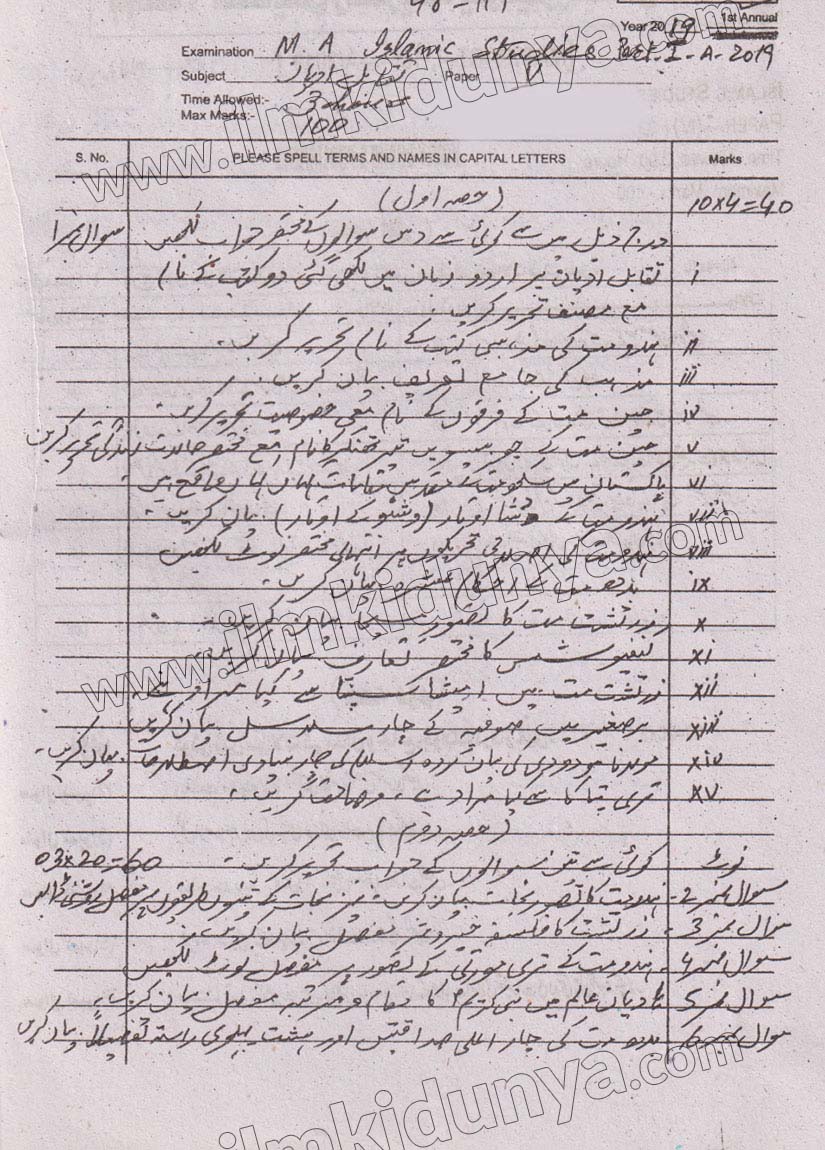 Year 2019 1st Annual
Examination M.A Islamic Studies Part-I-A-2019
Subject تقابل ادیان Paper V
Time Allowed:- 3 hours
Max Marks:- 100
S. No. PLEASE SPELL TERMS AND NAMES IN CAPITAL LETTERS Marks
(حصہ اول) 10x4=40
سوال نمبر 1 درج ذیل میں سے کوئی سے دس سوالوں کے مختصر جواب لکھیں
i تقابل ادیان پر اردو زبان میں لکھی گئی دو کتب کے نام
مع مصنف تحریر کریں۔
ii ہندومت کی مذہبی کتب کے نام تحریر کریں۔
iii مذہب کی جامع تعریف بیان کریں۔
iv جین مت کے فرقوں کے نام مع خصوصیت تحریر کریں۔
v جین مت کے چوبیسویں تیر تھنکر کا نام مع مختصر حالات زندگی تحریر کریں
vi پاکستان میں سکھ مت کے مقدس مقامات کہاں کہاں واقع ہیں
vii ہندومت کے اوتار (وشنو کے اوتار) بیان کریں۔
viii ہندومت کی اصلاحی تحریکوں پر انتہائی مختصر نوٹ لکھیں
ix بدھ مت کے احکام عشرہ بیان کریں۔
x زرتشت مت کا تصور بیان کریں۔
xi کنفیوشس کا مختصر تعارف بیان کریں۔
xii زرتشت مت میں سے کیا مراد ہے۔
xiii برصغیر میں صوفیہ کے چار سلاسل بیان کریں
xiv مولانا مودودی کی بیان کردہ اسلام کی چار بنیادی اصطلاحات بیان کریں۔
xv تری پتاکا سے کیا مراد ہے، وضاحت کریں۔
(حصہ دوم)
نوٹ کوئی سے تین سوالوں کے جواب تحریر کریں۔ 03x20=60
سوال نمبر 2- ہندومت کا تصور نجات بیان کریں۔ نیز نجات کے تینوں طریقوں پر مفصل روشنی ڈالیں
سوال نمبر 3- زرتشت کا فلسفہ خیر و شر مفصل بیان کریں۔
سوال نمبر 4- ہندومت کے تری مورتی کے تصور پر مفصل نوٹ لکھیں
سوال نمبر 5- ادیان عالم میں نبی کریمؐ کا مقام و مرتبہ مفصل بیان کریں۔
سوال نمبر 6- بدھ مت کی چار اعلیٰ صداقتیں اور ہشت پہلوی راستہ تفصیلاً بیان کریں
www.ilmkidunya.com
www.ilmkidunya.com
www.ilmkidunya.com
www.ilmkidunya.com